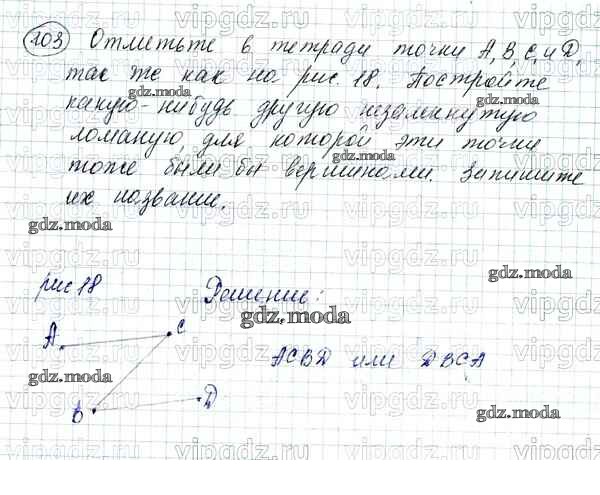 103 Отметьте в тетради точки A, B, C, и D,
так же как на рис. 18. Постройте
какую-нибудь другую незамкнутую
ломаную, для которой эти точки
тоже были бы вершинами. Запишите
их название.
рис 18 Решение:
A C
ACBD или DBCA
B D
vipgdz.ru
gdz.moda